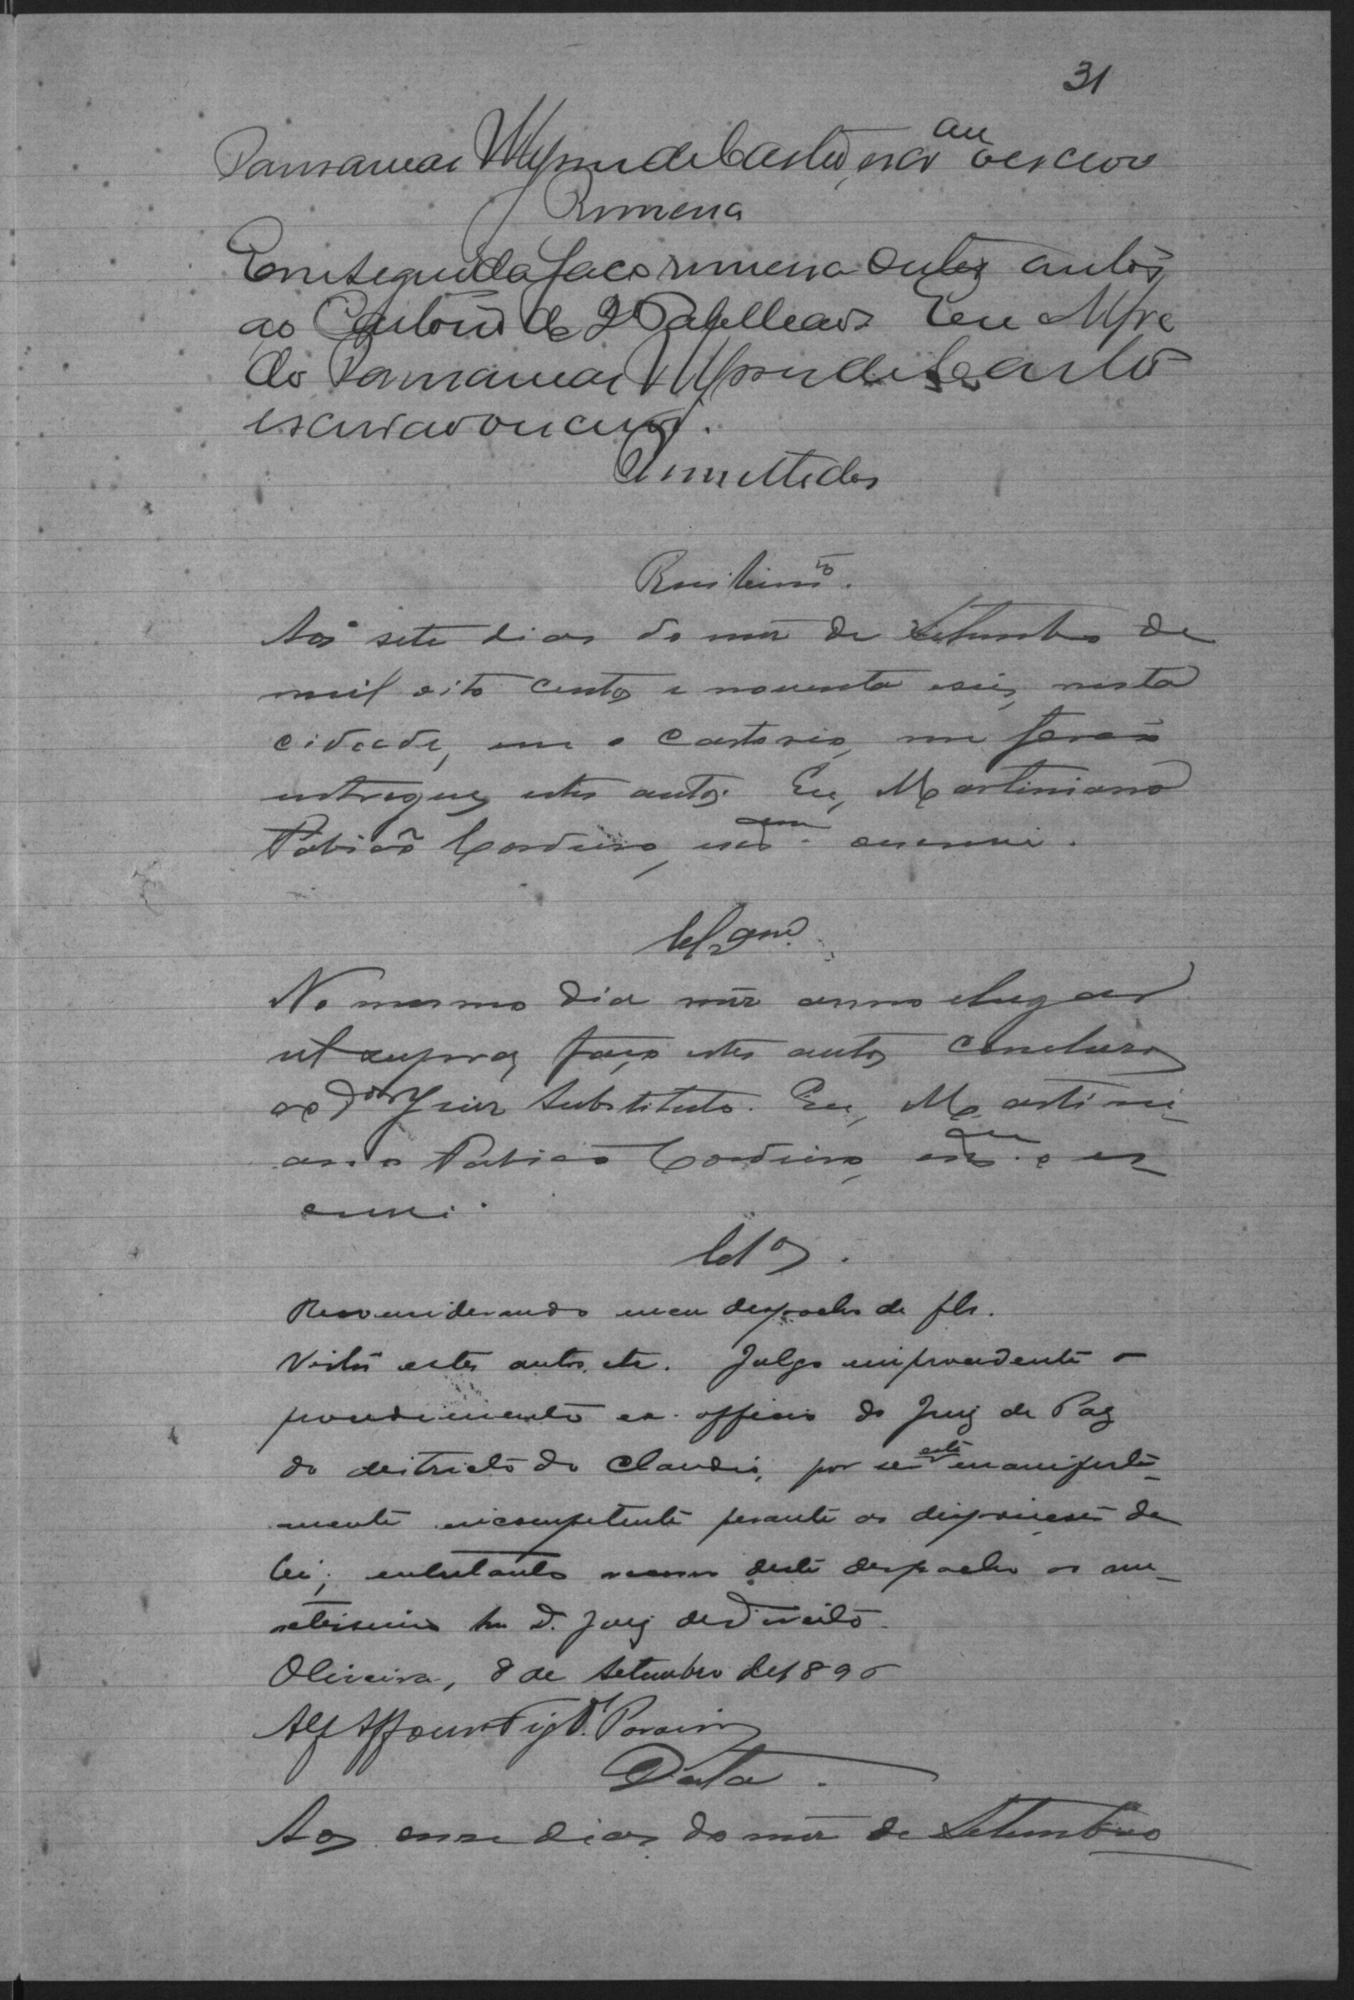 31
de Castro, escr.am o escrevi
Remessa
Em seguida faço remessa destes autos
ao Cartorio do 2º Tabelleão. Eu
de Castro
escrivão o escrevi.
Remettidos
Recebim.to.
Aos sete dias do mez de Setembro de
mil oito centos e noventa e seis, nesta
cidade, em o cartorio, me forão
entregues estes autos. Eu, Martiniano
Fabião Cordeiro, escr.am o escrevi.
Clzam.
No mesmo dia mez anno e lugar
ut supra, faço estes autos conclusos
ao Dor Juiz Substituto. Eu, Martini-
ano Fabião Cordeiro, escr.am o es
crevi.
Clos.
Reconsiderando meu despacho de fls.
Vistos estes autos, etc. Julgo improcedente o
procedimento ex-officio do Juiz de Paz
do districto do Claudio, por ser este manifesta-
mente incompetente perante as disposições da
lei; entretanto recorro deste despacho ao me-
retissimo Snr. D. Juiz de Direito.
Oliveira, 8 de Setembro de 1896
Data.
Aos onze dias do mez de Setembro